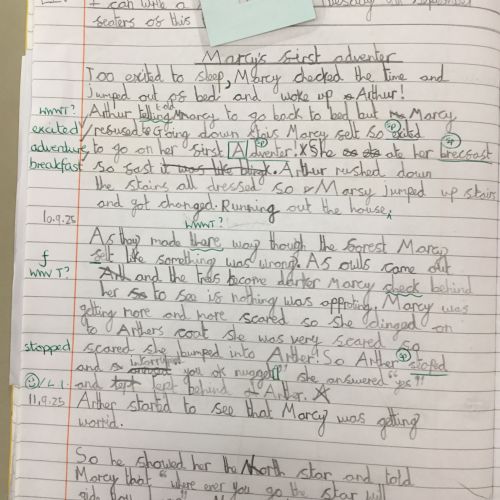 I can write a
seaters of this
Marcy's first adventer
Too exited to sleep, Marcy checked the time and
jumped out of bed and woke up Arthur!
WWWT? Arthur, telling told Marcy to go back to bed but Marcy
excited refused to Going down stairs Marcy felt so exited
adventure to go on her first Adventer! She ate her brecfast
breakfast so fast it was like blink. Arthur rushed down
the stairs all dressed so Marsy jumped up stairs
and got changed. Running out the house,
10.9.25
WWWT?
As they made there way though the forest Marcy
f felt like something was wrong. As owls came out
WWWT? and the tres become darker Marcy check behind
her to see if nothing was opproting. Marcy was
getting more and more scared so she clinged on
to Arthers coat she was very scared so
stopped scared she bumped into Arther! So Arther stofed
and "you ok nugget" she answered "yes"
and kept behind Arther.
11.9.25 Arther started to see that Marcy was getting
worrid.
So he showed her the North star and told
Marcy that "where ever you go the star will